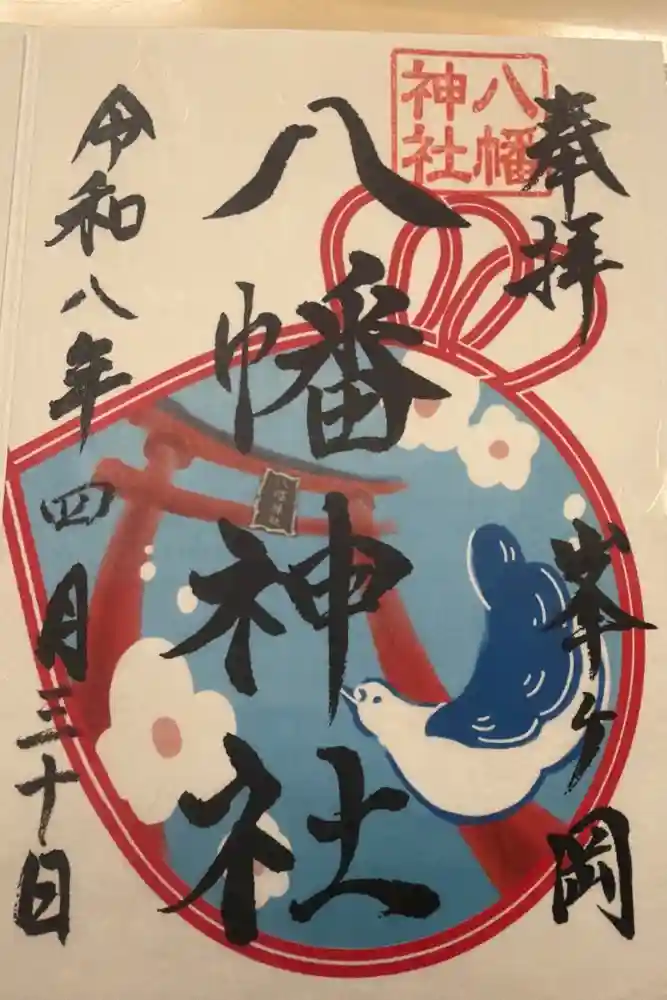 奉拝
峯ヶ岡
八幡神社
八幡神社
令和八年四月三十日